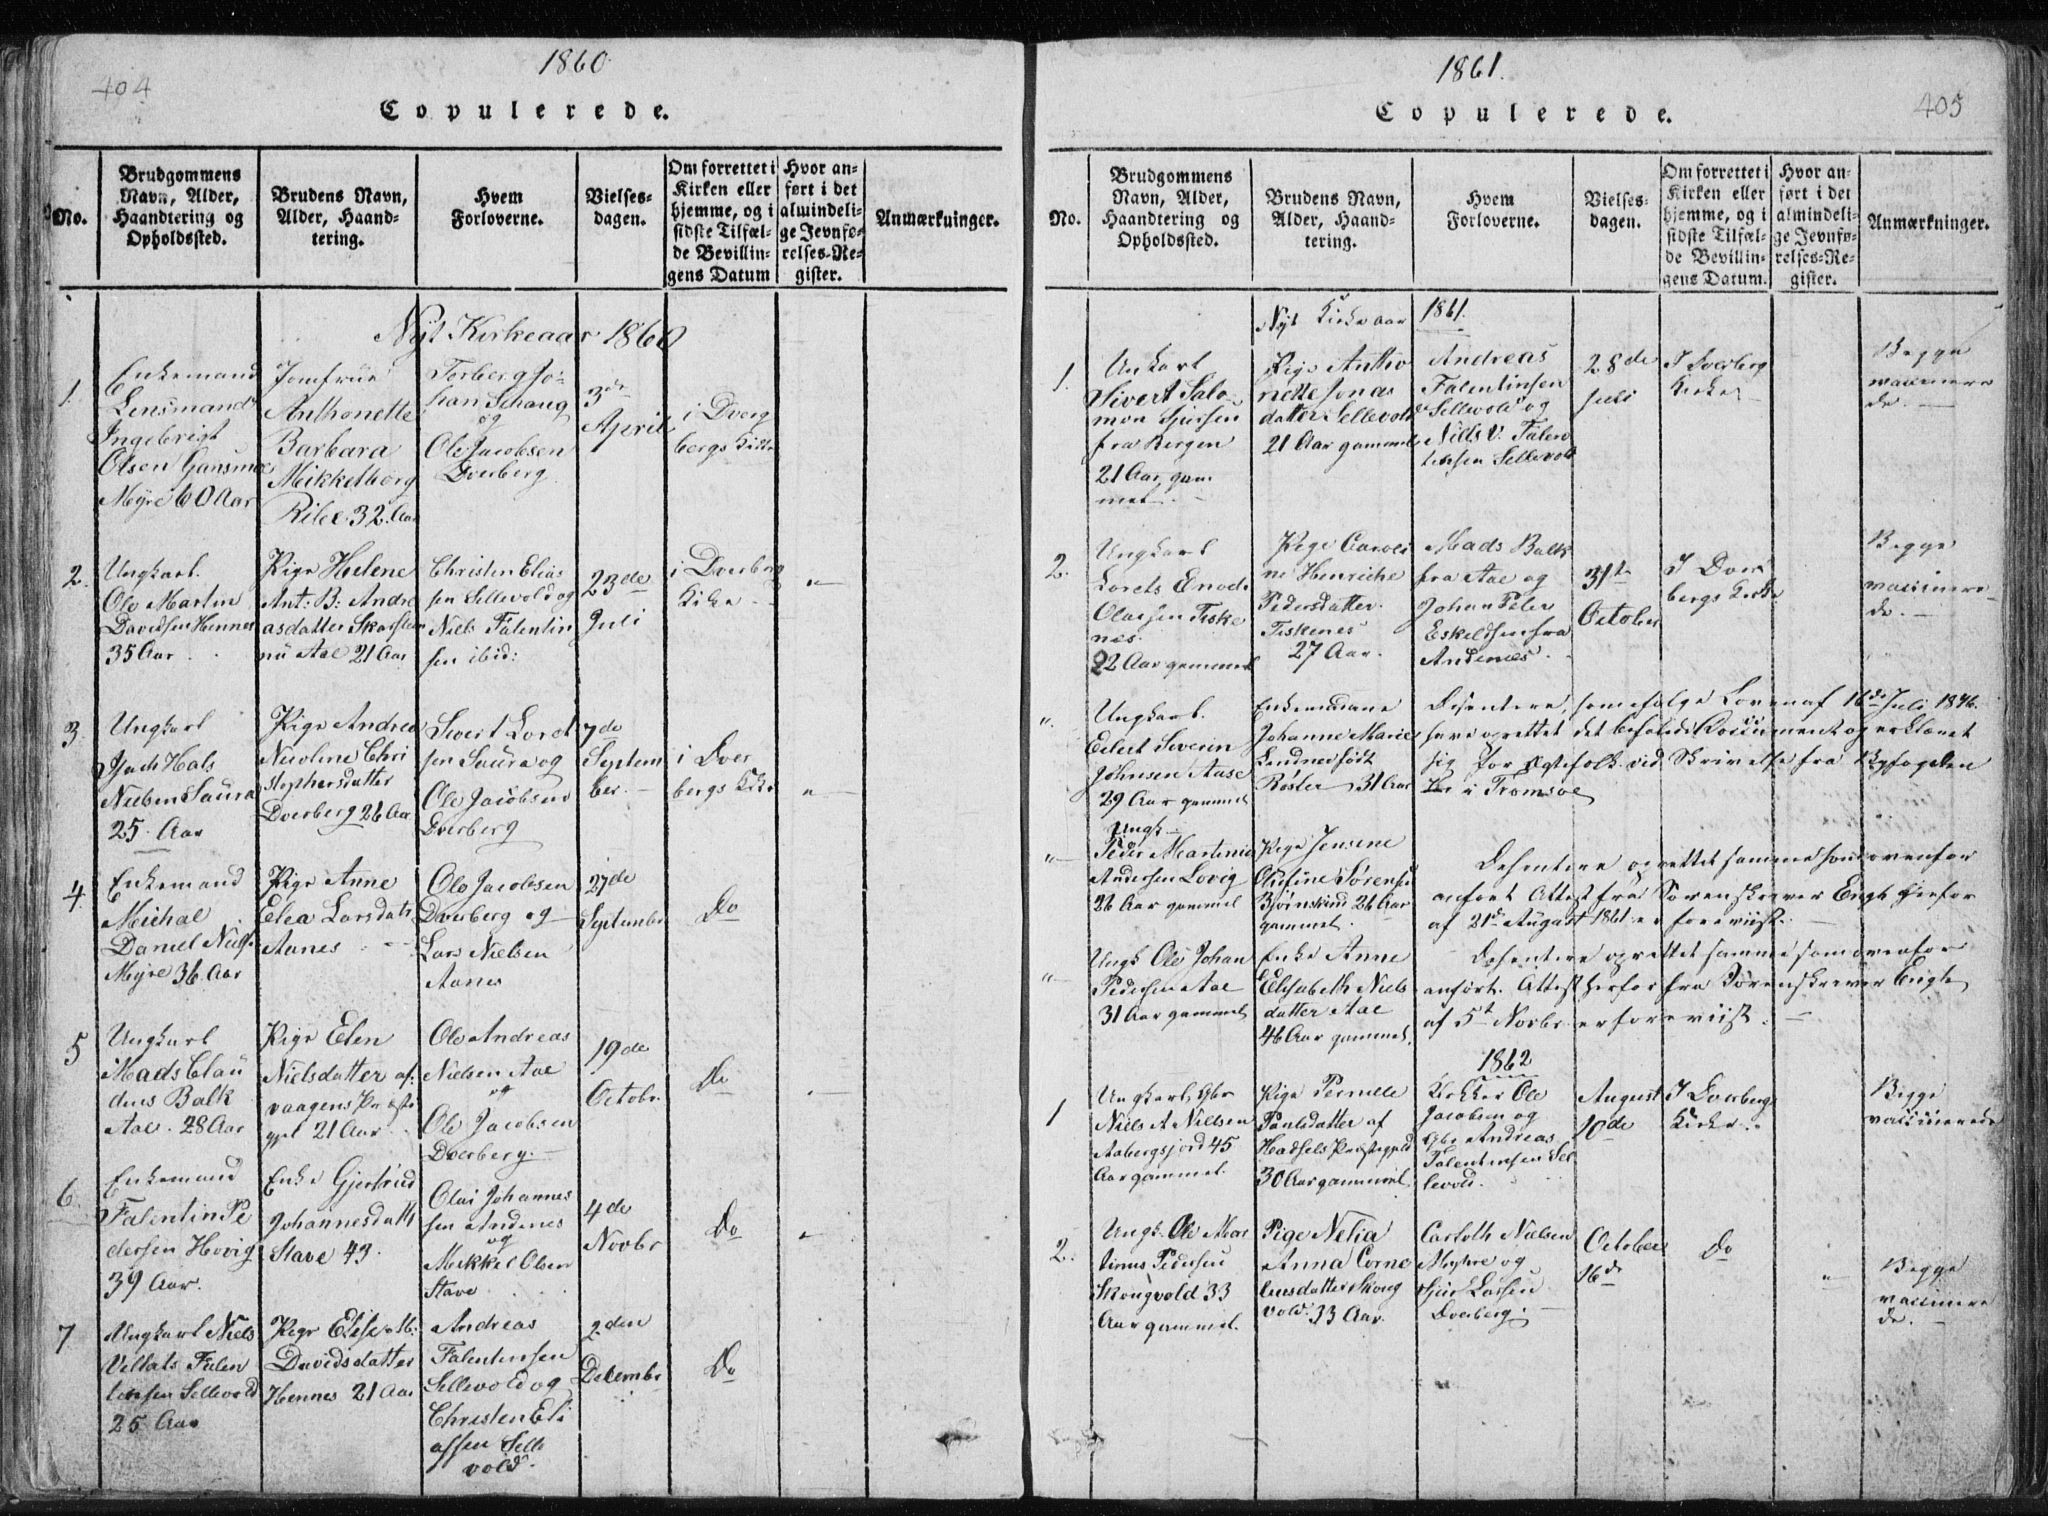 404
1860
Copulerede.
No.
Brudgommens Navn, Alder, Haandtering og Opholdssted.
Brudens Navn, Alder, Haandtering.
Hvem Forloverne.
Vielsesdagen.
Om forrettet i Kirken eller hjemme, og i sidste Tilfælde Bevillingens Datum
Hvor anført i det almindelige Jevnførelses-Register.
Anmærkninger.
Nyt Kirkeaar 1860
1.
Enkemand
Lensmand
Ingebrigt
Olsen Gansmoe
Myre 60 Aar
Jomfrue
Anthonette
Barbara
Mikkelborg
Ribe 32 Aar
Torberg Jo-
han Schaug
og
Ole Jacobsen
Dverberg
3de
April
i Dverg
bergs Kirke
2.
Ungkarl
Ole Martin
Davidsen Hennes
35 Aar
Pige Helene
Ant: B: Andre
asdatter Skarstein
nu Aae 21 Aar
Christen Elias
sen Sellevold og
Niels Falentin
sen ibid:
23de
Juli
i Dverberg
Kirke
"
3.
Ungkarl
Isach Hals
Nielsen Saura
25 Aar
Pige Andrea
Nicoline Chri
stophersdatter
Dverberg 26 Aar
Sivert Lorent
sen Saura og
Ole Jacobsen
Dverberg
7de
Septem
ber.
i Dver
bergs Kirke
"
4.
Enkemand
Michal
Daniel Niels.
Myre 36 Aar
Pige Anne
Elea Larsdatr
Aanes
Ole Jacobsen
Dverberg og
Lars Nielsen
Aanes
27de
Septembr
Do
5
Ungkarl
Mads Clau
dius Balk
Aae. 28 Aar
Pige Elen
Nielsdatter af
vaagens Præste
gjel 21 Aar
Ole Andreas
Nielsen Aae
og
Ole Jacobsen
Dverberg.
19de
Octobr.
Do
"
6
Enkemand
Falentin Pe
dersen Hovig
39 Aar.
Enke Gjertrud
Johannesdatt
Stave 43.
Olai Johannes
sen Andenes
og
Mikkel Olsen
Stave
4de
Novbr
Do
"
7
Ungkarl Niels
Vellats Falen
tinsen Sellevold
25 Aar
Pige Elise M:
Davidsdatter
Hennes 21 Aar
Andreas
Falentinsen
Sellevold og
Christen Eli
assen Selle
vold.
2den
Decembr
Do
1861.
405
Copulerede.
No.
Brudgommens Navn, Alder, Haandtering og Opholdssted.
Brudens Navn, Alder, Haandtering.
Hvem Forloverne.
Vielsesdagen.
Om forrettet i Kirken eller hjemme, og i sidste Tilfælde Bevillingens Datum.
Hvor anført i det almindelige Jevnførelses-Register.
Anmærkninger.
Nyt Kirkeaar 1861.
1.
Unkarl
Sivert Salo
mon Sjursen
fra Bergen
21 Aar gam
mel
Pige Antho
nette Jonas
datter Sellevold
21 Aar gammel
Andreas
Falentinsen
Sellevold og
Niels V. Falen
tinsen Sellevold
28de
Juli
I Dverberg
Kirke
Begge
vaccinere
de.
2.
Ungkarl
Lorets Enok
Olaisen Fiske
nes.
22 Aar gammel
Pige Caroli
ne Henrikke
Pedersdatter
Fiskenes
27 Aar.
Mads Balk
fra Aae og
Johan Peter
Eskeldsen fra
Andenes.
31te
October
I Dver
bergs Kirke
Begge
vaccinere
de.
"
Ungkarl.
Edert Severin
Johnsen Aase
29 Aar gammel
Enkemadame
Johanne Marie
Lendner født
Røster 31 Aar
Disentere, som efølge Loven af 16de Juli 1846.
have oprettet det befalede Document og erklæret
sig for Ægtefolk vid Skrivelse fra Byfogden
i Tromsøe
"
Ungk
Peder Martinus
Andersen Lovig
26 Aar gammel
Pige Jensine
Olufine Sørensd
Bjørnskind 26 Aar
gammel.
Desentere oprettet samme som ovenfor
anført Attest fra Sorenskriver Engh herfor
af 21de August 1861 er foreviist.
"
Ungk Ole Johan
Pedersen Aae
31 Aar gammel
Enke Anne
Elisabeth Niels
datter Aae
46 Aar gammel.
Desentere oprettet samme som ovenfor
anført. Attest herfor fra Sorenskriver Engh
af 5te Novbr er foreviist.
1862
1
Ungkarl, Gbr
Niels A Nielsen
Aabergsjord 45
Aar gammel.
Pige Pernille
Paulsdatter af
Hadsels Præstegjeld
30 Aar gammel.
Kirkker Ole
Jacobsen og
Gbr Andreas
Falentinsen Sel
levold.
August
10de
I Dverbergs
Kirke.
Begge
vaccinerede
2.
Ungk. Ole Mar
tinus Pedersen
Skongvold 33
Aar gammel.
Pige Nelia
Anna Corne
liusdatter Skong
vold. 33 Aar.
Carloth Nielsen
Myhre og
Sjur Larsen
Dverberg.
October
16de
Do
"
Begge
vaccinere
de.